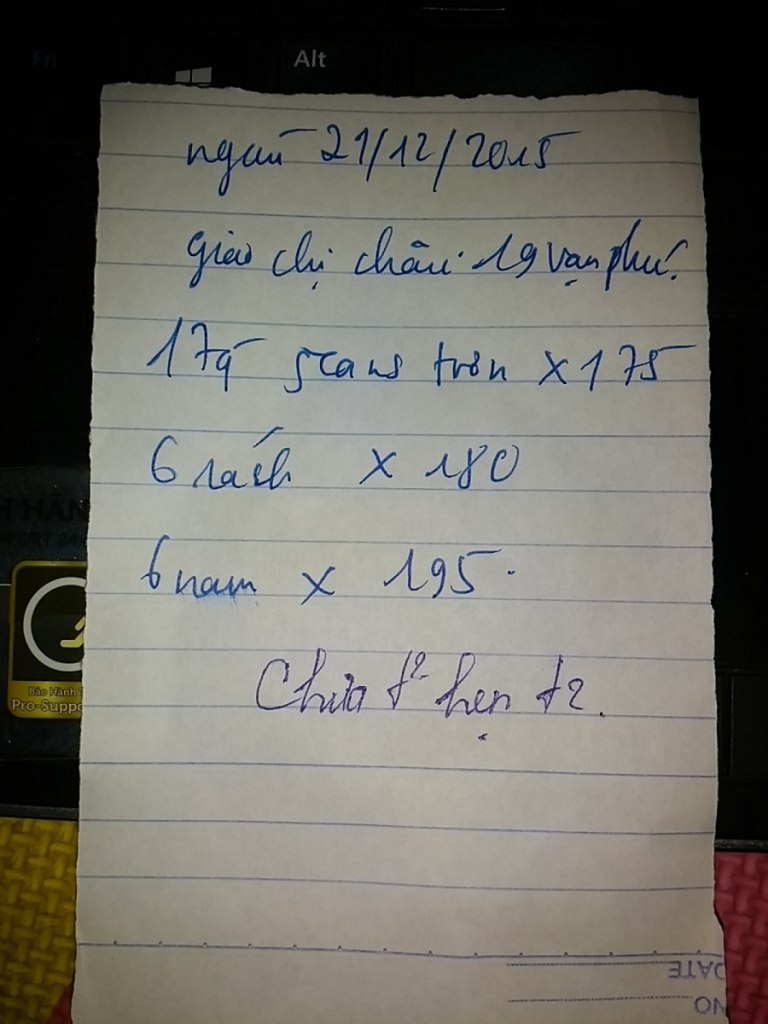 Fn
Alt
ngày 21/12/2015
giao chị châu 19 vạn phú.
17q jeans trơn x 175
6 rách x 180
6 nam x 195.
Chưa t² hẹn t2.
H HÀN
PPORT 24
Bảo Hành T
Pro-Suppo
DATE
NO